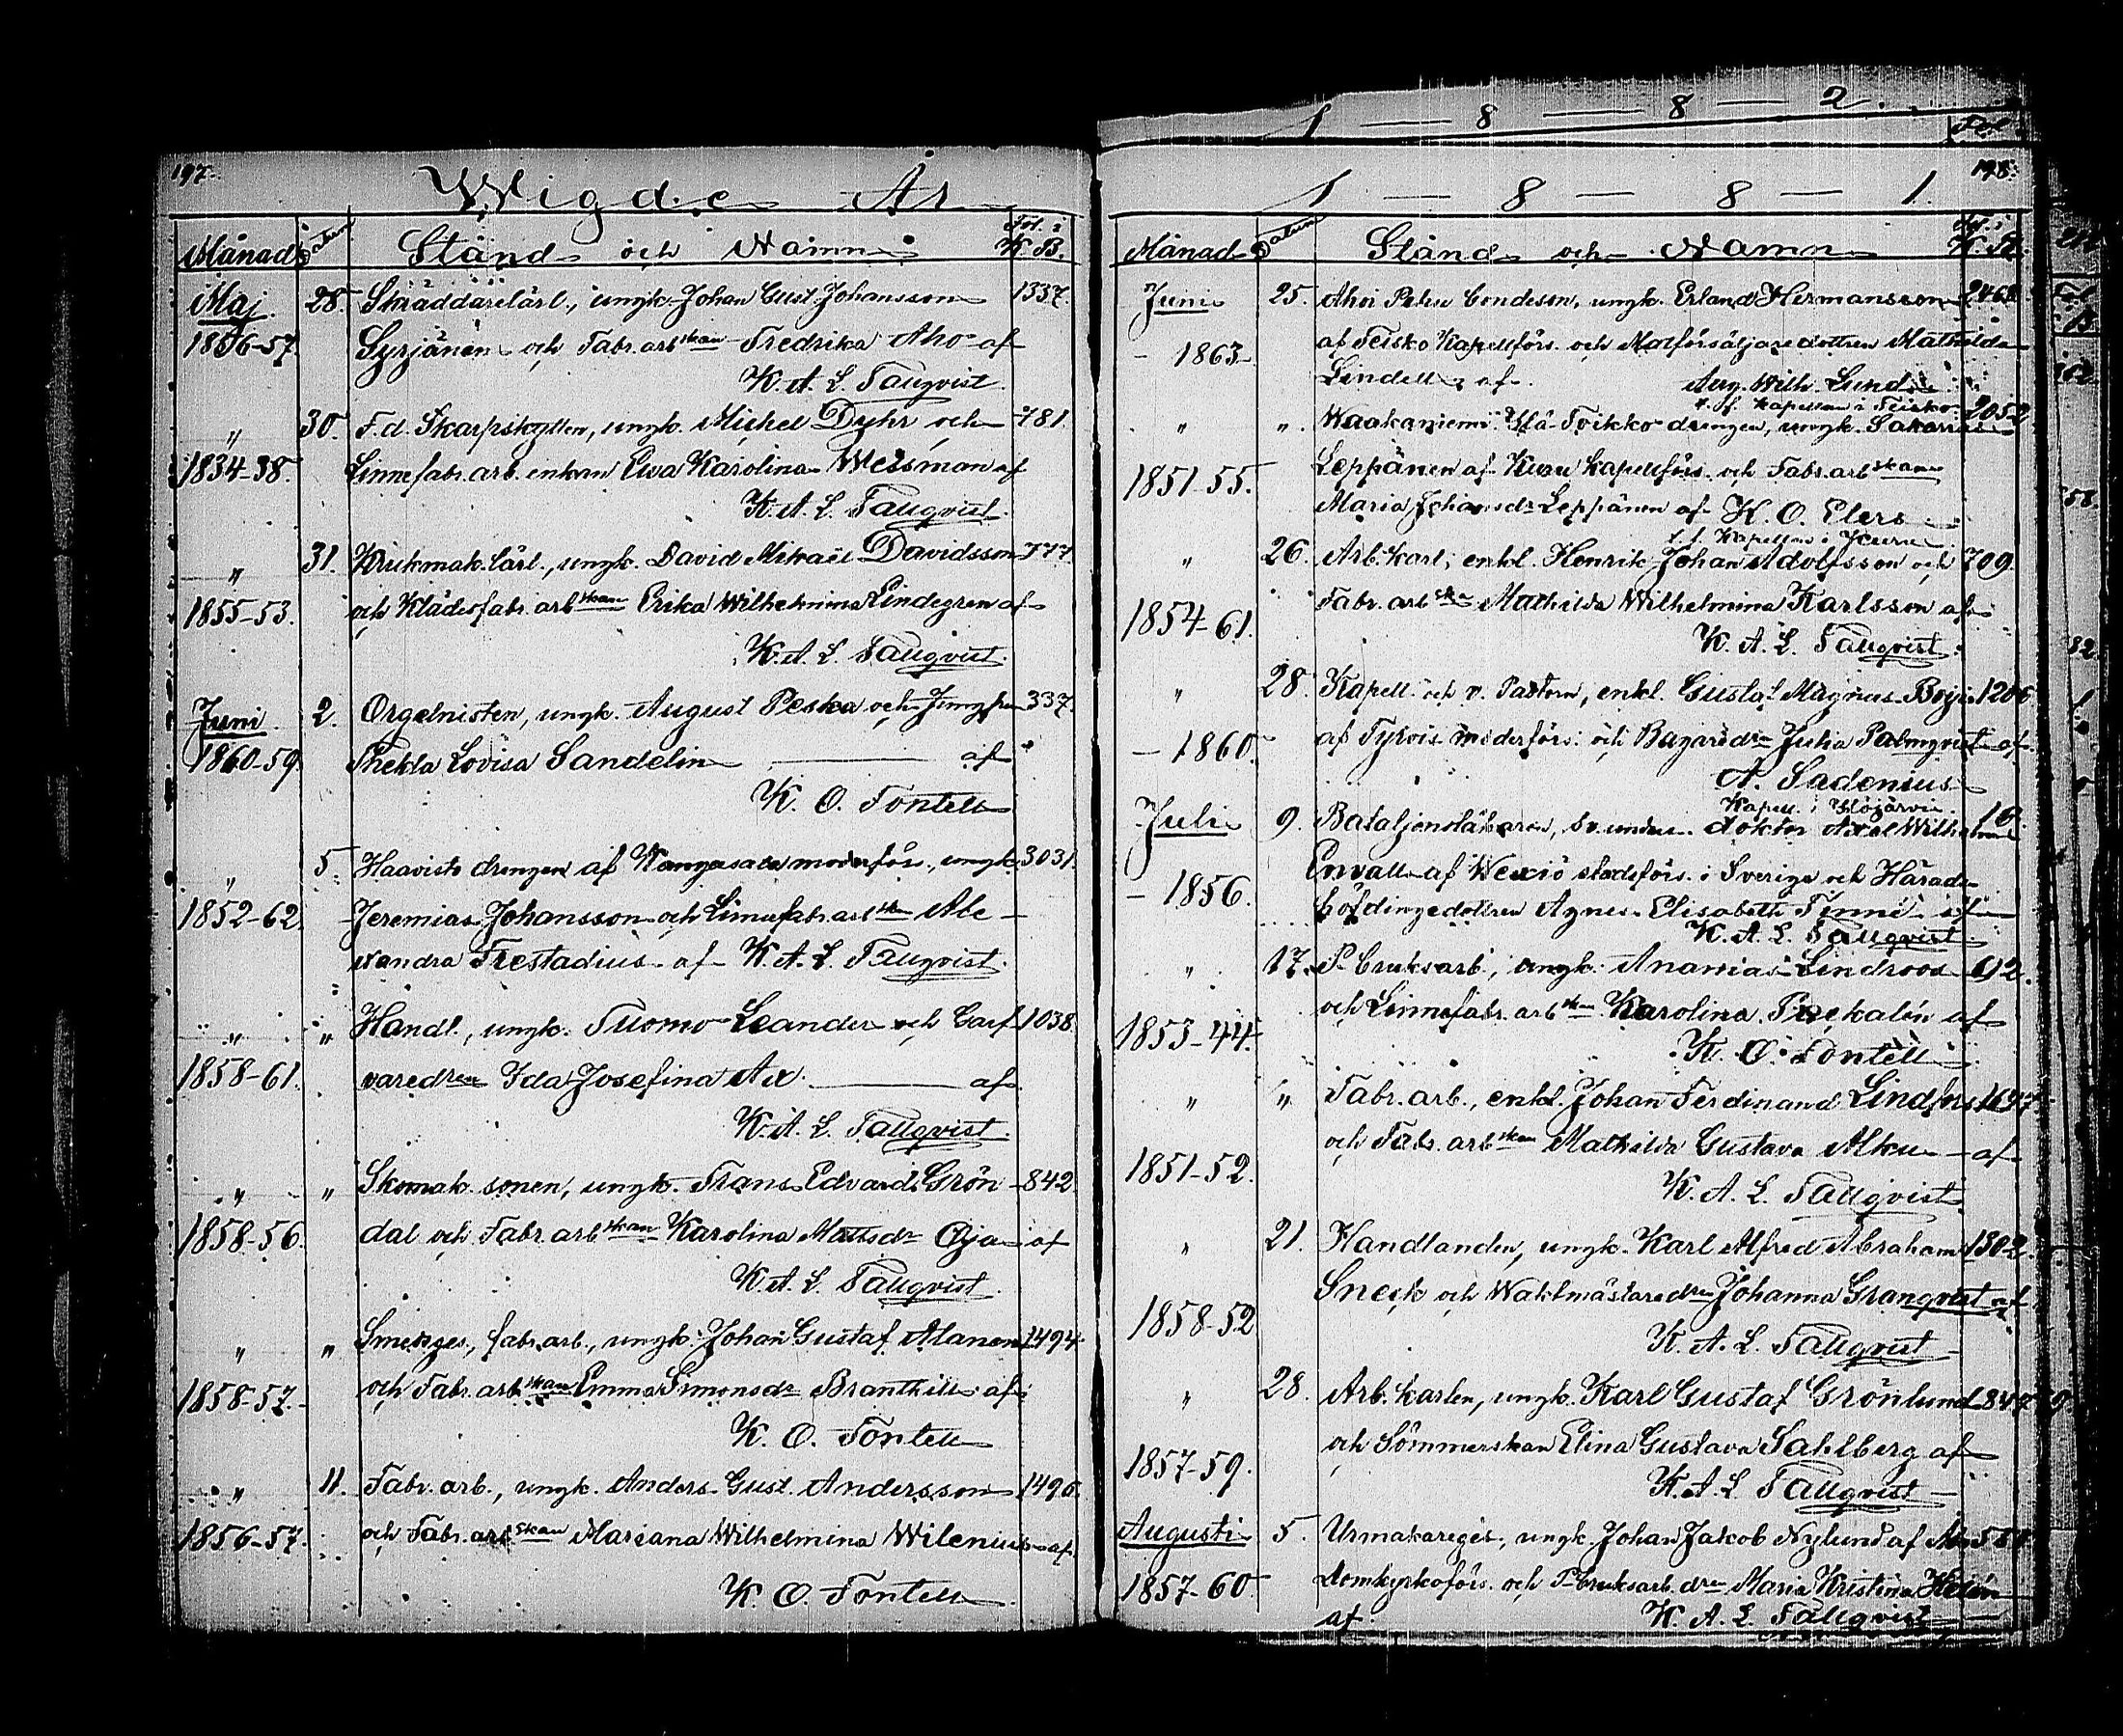 197.
Wigde År
Månad Datum Stånd och Namn Fol. i K. B.
Maj. 28. Skräddarelärl., ungk. Johan Gust. Johansson 1337.
1856-57. Syrjänen och Fabr. arbskan Fredrika Aho af
K. A. L. Tallqvist.
" 30. F. d. Skarpskytten, ungk. Michel Dyhr och 781.
1834-38. Linnefabr. arb. enkan Ewa Karolina Weisman af
K. A. L. Tallqvist.
" 31. Krukmak. lärl., ungk. David Mikael Davidsson 777.
1855-53. och Klädesfabr. arbskan Erika Wilhelmina Lindegren af
K. A. L. Tallqvist.
Juni 2. Orgelnisten, ungk. August Peska och Jungfru 337.
1860-59. Thekla Lovisa Sandelin — af
K. O. Fontell
" 5. Haavisto drengen af Kangasala moderförs., ungk. 3031.
1852-62. Jeremias Johansson och Linnefabr. arbskan Ale-
xandra Frestadius af K. A. L. Tallqvist.
" " Handl., ungk. Tuomo Leander och Garf- 1038.
1858-61. varedren Ida Josefina Ax. — af
K. A. L. Tallqvist.
" " Skomak. sonen, ungk. Frans Edvard Grön- 842.
1858-56. dal och Fabr. arbskan Karolina Mattsdr Oja af
K. A. L. Tallqvist.
" " Smedges., fabr. arb., ungk. Johan Gustaf Alanen 1494.
1858-57. och Fabr. arbskan Emma Simonsdr Branthill af
K. O. Fontell
" 11. Fabr. arb., ungk. Anders Gust. Andersson 1496.
1856-57. och Fabr. arbskan Mariana Wilhelmina Wilenius af
K. O. Fontell
1 — 8 — 8 — 2.
Fol.
198.
1 — 8 — 8 — 1.
Månad Datum Stånd och Namn Fol. i K. B.
Juni 25. Bondeson, ungk. Erland Hermansson 2468.
– 1863 af Teisko Kapellförs. och dottren Mathilda
Lindell af Aug. Wilh. Lund
v. f. Kapellan i Teisko.
" " Waakaniemi Ylä-Toikko drengen, ungk. Sakarias 2052
1851-55. Leppänen af Kuru kapellförs. och Fabr. arbskan
Maria Johansdr Leppänen af K. O. Elers
v. f. Kapellan i Kuru
" 26. Arb. karl, enkl. Henrik Johan Adolfsson och 709.
1854-61. Fabr. arbska Mathilda Wilhelmina Karlsson af
K. A. L. Tallqvist.
" 28. Kapell. och v. Pastorn, enkl. Gustaf Magnus 1206.
– 1860. af Tyrvis moderförs. och Bagaredr Julia Palmqvist af
A. Sadenius
Kapell. i Ylöjärvi.
Juli 9. Bataljonsläkaren, doktor Axel Wilhelm 16.
– 1856. Envall af Wexiö stadsförs. i Sverige och Härads-
höfdingedottren Agnes Elisabeth af
K. A. L. Tallqvist.
" 17. P. bruksarb., ungk. Ananias Lindroos 612.
1853-44. och Linnefabr. arbskan Karolina af
K. O. Fontell
" " Fabr. arb., enkl. Johan Ferdinand Lindfors 1697.
1851-52. och Fabr. arbskan Mathilda Gustava Alku af
K. A. L. Tallqvist
" 21. Handlanden, ungk. Karl Alfred Abraham 1302.
1858-52 Sneck och Waktmästaredren Johanna Granqvist af
K. A. L. Tallqvist
" 28. Arb. karlen, ungk. Karl Gustaf Grönlund
1857-59. och Sömmerskan Elina Gustava Sahlberg af
K. A. L. Tallqvist
Augusti 5. Urmakareges., ungk. Johan Jakob Nylund af Åbo
1857-60 domkyrkoförs. och P. bruksarb. dr Maria Kristina
af K. A. L. Tallqvist